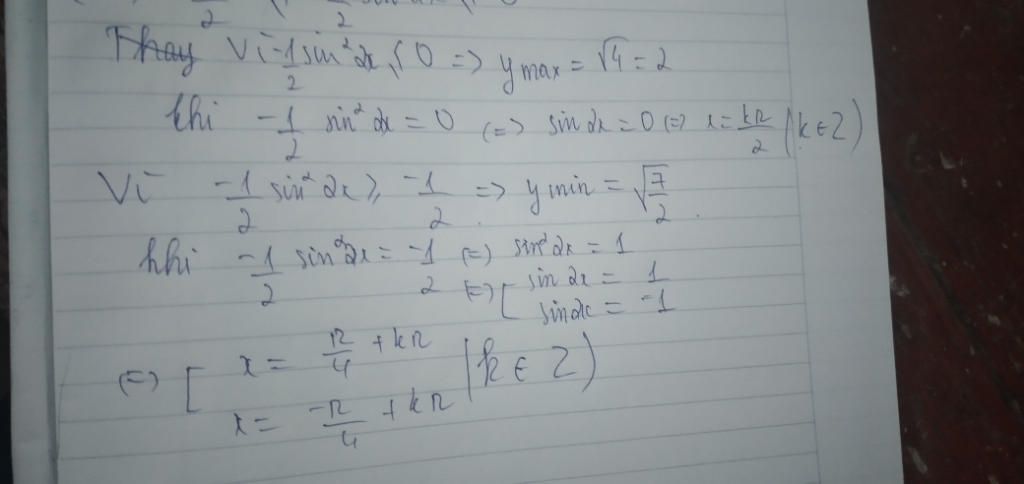 Vì -1/2 sin²2x ≤ 0 => y max = √4 = 2
khi -1/2 sin²2x = 0 <=> sin2x = 0 <=> x = kπ/2 (k ∈ Z)
Vì -1/2 sin²2x ≥ -1/2 => y min = √(7/2).
khi -1/2 sin²2x = -1/2 <=> sin²2x = 1
<=> [ sin2x = 1
sin2x = -1
<=> [ x = π/4 + kπ (k ∈ Z)
x = -π/4 + kπ